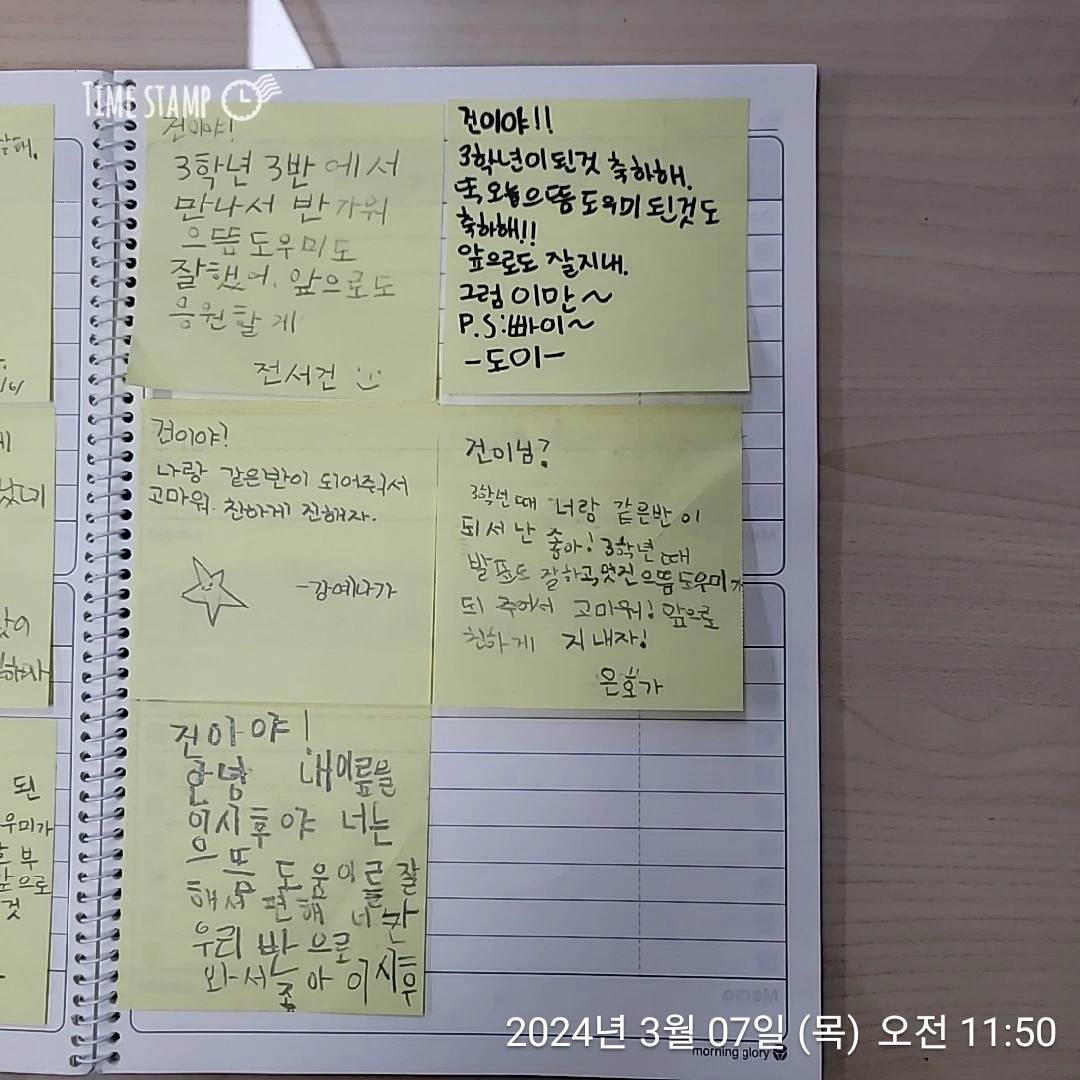 TIME STAMP
건이야!
3학년 3반에서
만나서 반가워
으뜸도우미도
잘했어. 앞으로도
응원할게
전서건
건이야!!
3학년이 된것 축하해.
또 오늘 으뜸도우미 된것도
축하해!!
앞으로도 잘지내.
그럼 이만~
P.S:빠이~
-도이-
건이야?
나랑 같은반이 되어줘서
고마워. 친하게 진해자.
-강예나가
건이님?
3학년때 너랑 같은반이
되서 난 좋아! 3학년때
발표도 잘하고,멋진 으뜸도우미가
되 주어서 고마워! 앞으로
친하게 지내자!
은호가
건이야!
안녕 내이름을
이시후야 너는
으뜸도움이를 잘
해서 편해 너가
우리 반으로
와서 좋아 이시후
된
우미가
부
앞으로
것
Memo
morning glory
2024년 3월 07일 (목) 오전 11:50